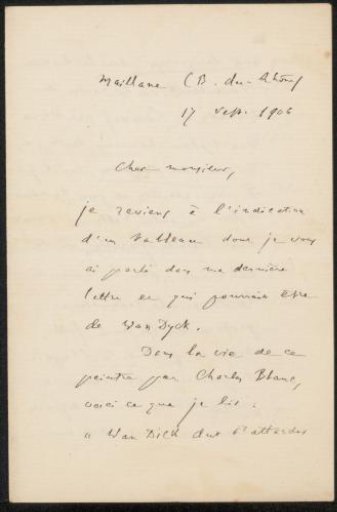 Maillane (B. du-Rhône)
17 sept. 1906
Cher monsieur,
je reviens à l'indication
d'un tableau dont je vous
ai parlé dans ma dernière
lettre et qui pourrait être
de Van Dyck.
Dans la vie de ce
peintre par Charles Blanc,
voici ce que je lis :
« Van Dick dut s'attarder